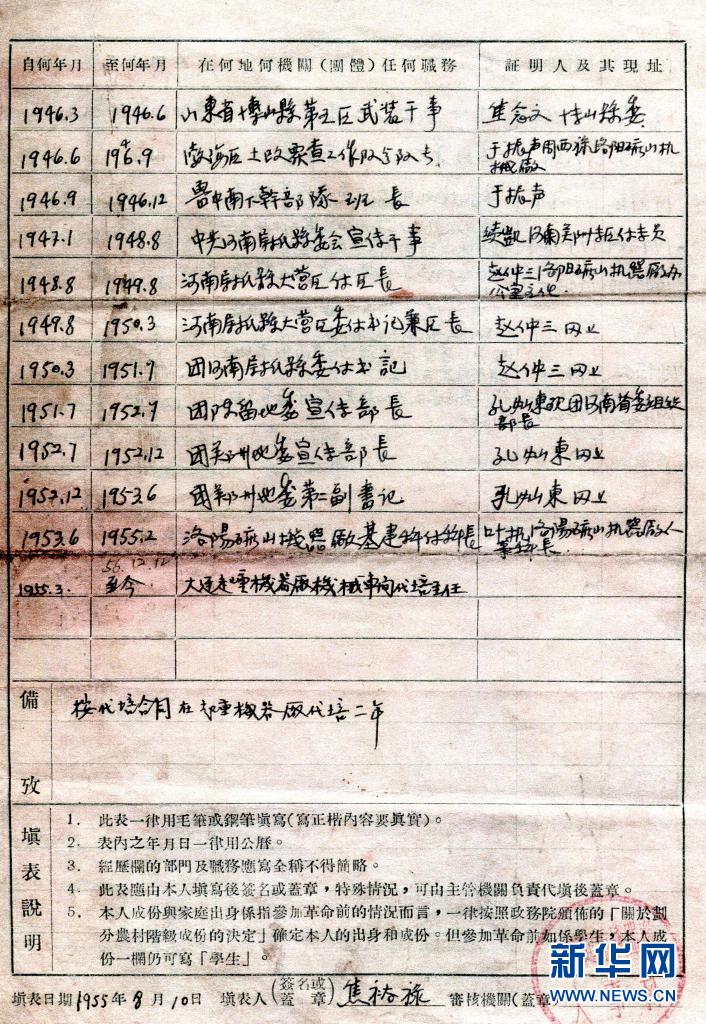 自何年月 至何年月 在何地何機關(團體)任何職務 証明人及其現址
1946.3 1946.6 山東省博山縣第五区武装干事 焦念文 博山縣委
1946.6 1946.9 渤海区土改票查工作队分队长 于振声 洛阳矿山机
械廠
1946.9 1946.12 魯中南下幹部隊班長 于振声
1947.1 1948.8 中共河南尉氏縣委会宣传干事
1948.8 1949.8 河南尉氏縣大营区付区長 赵仲三洛阳矿山机器廠办
公室主任
1949.8 1950.3 河南尉氏縣大营区委付书记兼区長 赵仲三同上
1950.3 1951.7 团河南尉氏縣委付书記 赵仲三同上
1951.7 1952.7 团陈留地委宣传部長 孔灿東现团河南省委组织
部長
1952.7 1952.12 团郑州地委宣传部長 孔灿東同上
1952.12 1953.6 团郑州地委第二副書记 孔灿東同上
1953.6 1955.2 洛陽矿山機器廠基建科付科長 洛陽矿山机器廠人
事科長
56.12.12
1955.3. 至今. 大连起重機器廠機械車间代培主任
備攷
按代培合同在起重機器廠代培二年
填表說明
1. 此表一律用毛筆或鋼筆填寫(寫正楷內容要眞實)。
2. 表內之年月日一律用公曆。
3. 經歷欄的部門及職務應寫全稱不得簡略。
4. 此表應由本人填寫後簽名或蓋章，特殊情況，可由主管機關負責代填後蓋章。
5. 本人成份與家庭出身係指參加革命前的情況而言，一律按照政務院頒佈的「關於劃
分農村階級成份的決定」確定本人的出身和成份。但參加革命前如係學生，本人成
份一欄仍可寫「學生」。
填表日期1955年8月10日 填表人(簽名或蓋章)焦裕祿 審核機關(蓋章
新华网
WWW.NEWS.CN